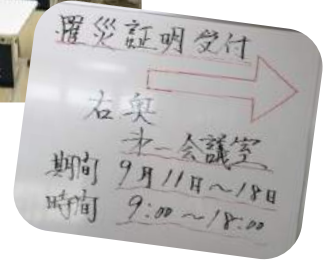 罹災証明受付
右奥
才一会議室
期間 9月11日～18日
時間 9:00～18:00